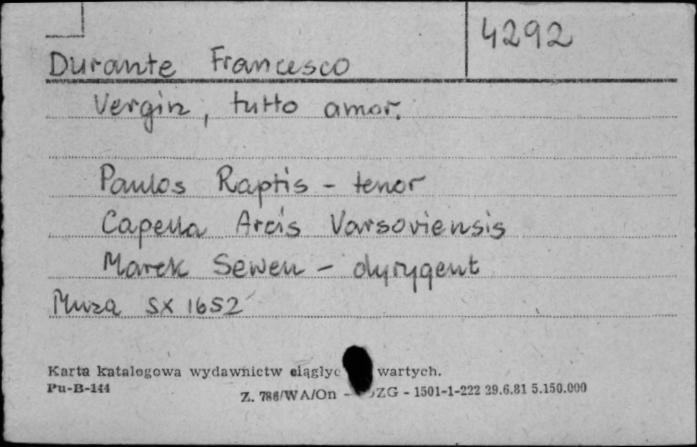 4292
Durante Francesco
Vergin, tutto amor.
Paulos Raptis - tenor
Capella Arcis Varsoviensis
Marek Sewen - dyrygent
Muza SX 1652
Karta katalogowa wydawnictw wartych.
Pu-B-144
Z. 786/WA/On - ZG - 1501-1-222 29.6.81 5.150.000